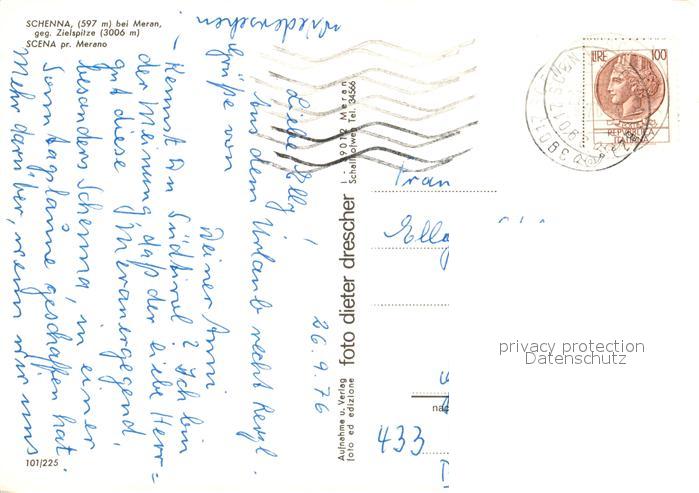 SCHENNA, (597 m) bei Meran,
geg. Zielspitze (3006 m)
SCENA pr. Merano
26.9.76
Liebe Elly,
Aus dem Urlaub recht herzl.
Grüße von
Deiner Anni
- Kennst Du Südtirol? Ich bin
der Meinung, daß der liebe Herr=
gott diese Meranergegend,
besonders Schenna, in einer
Sonntagslaune geschaffen hat.
Mehr darüber, wenn wir uns
wiedersehen
101/225
Aufnahme u. Verlag
foto ed edizione
foto dieter drescher
I - 39012 Meran
Schaffhofweg Tel. 34566
LIRE 100
REPUBBLICA
ITALIANA
Frau
Elly
433
privacy protection
Datenschutz